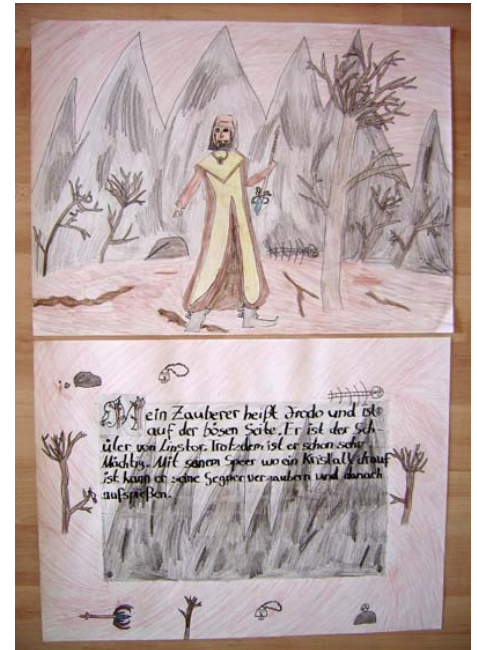 Mein Zauberer heißt Drodo und ist
auf der bösen Seite. Er ist der Sch-
üler von Linstor. Trotzdem ist er schon sehr
Mächtig. Mit seinem Speer wo ein Kristall drauf
ist kann er seine Gegner verzaubern und danach
aufspießen.